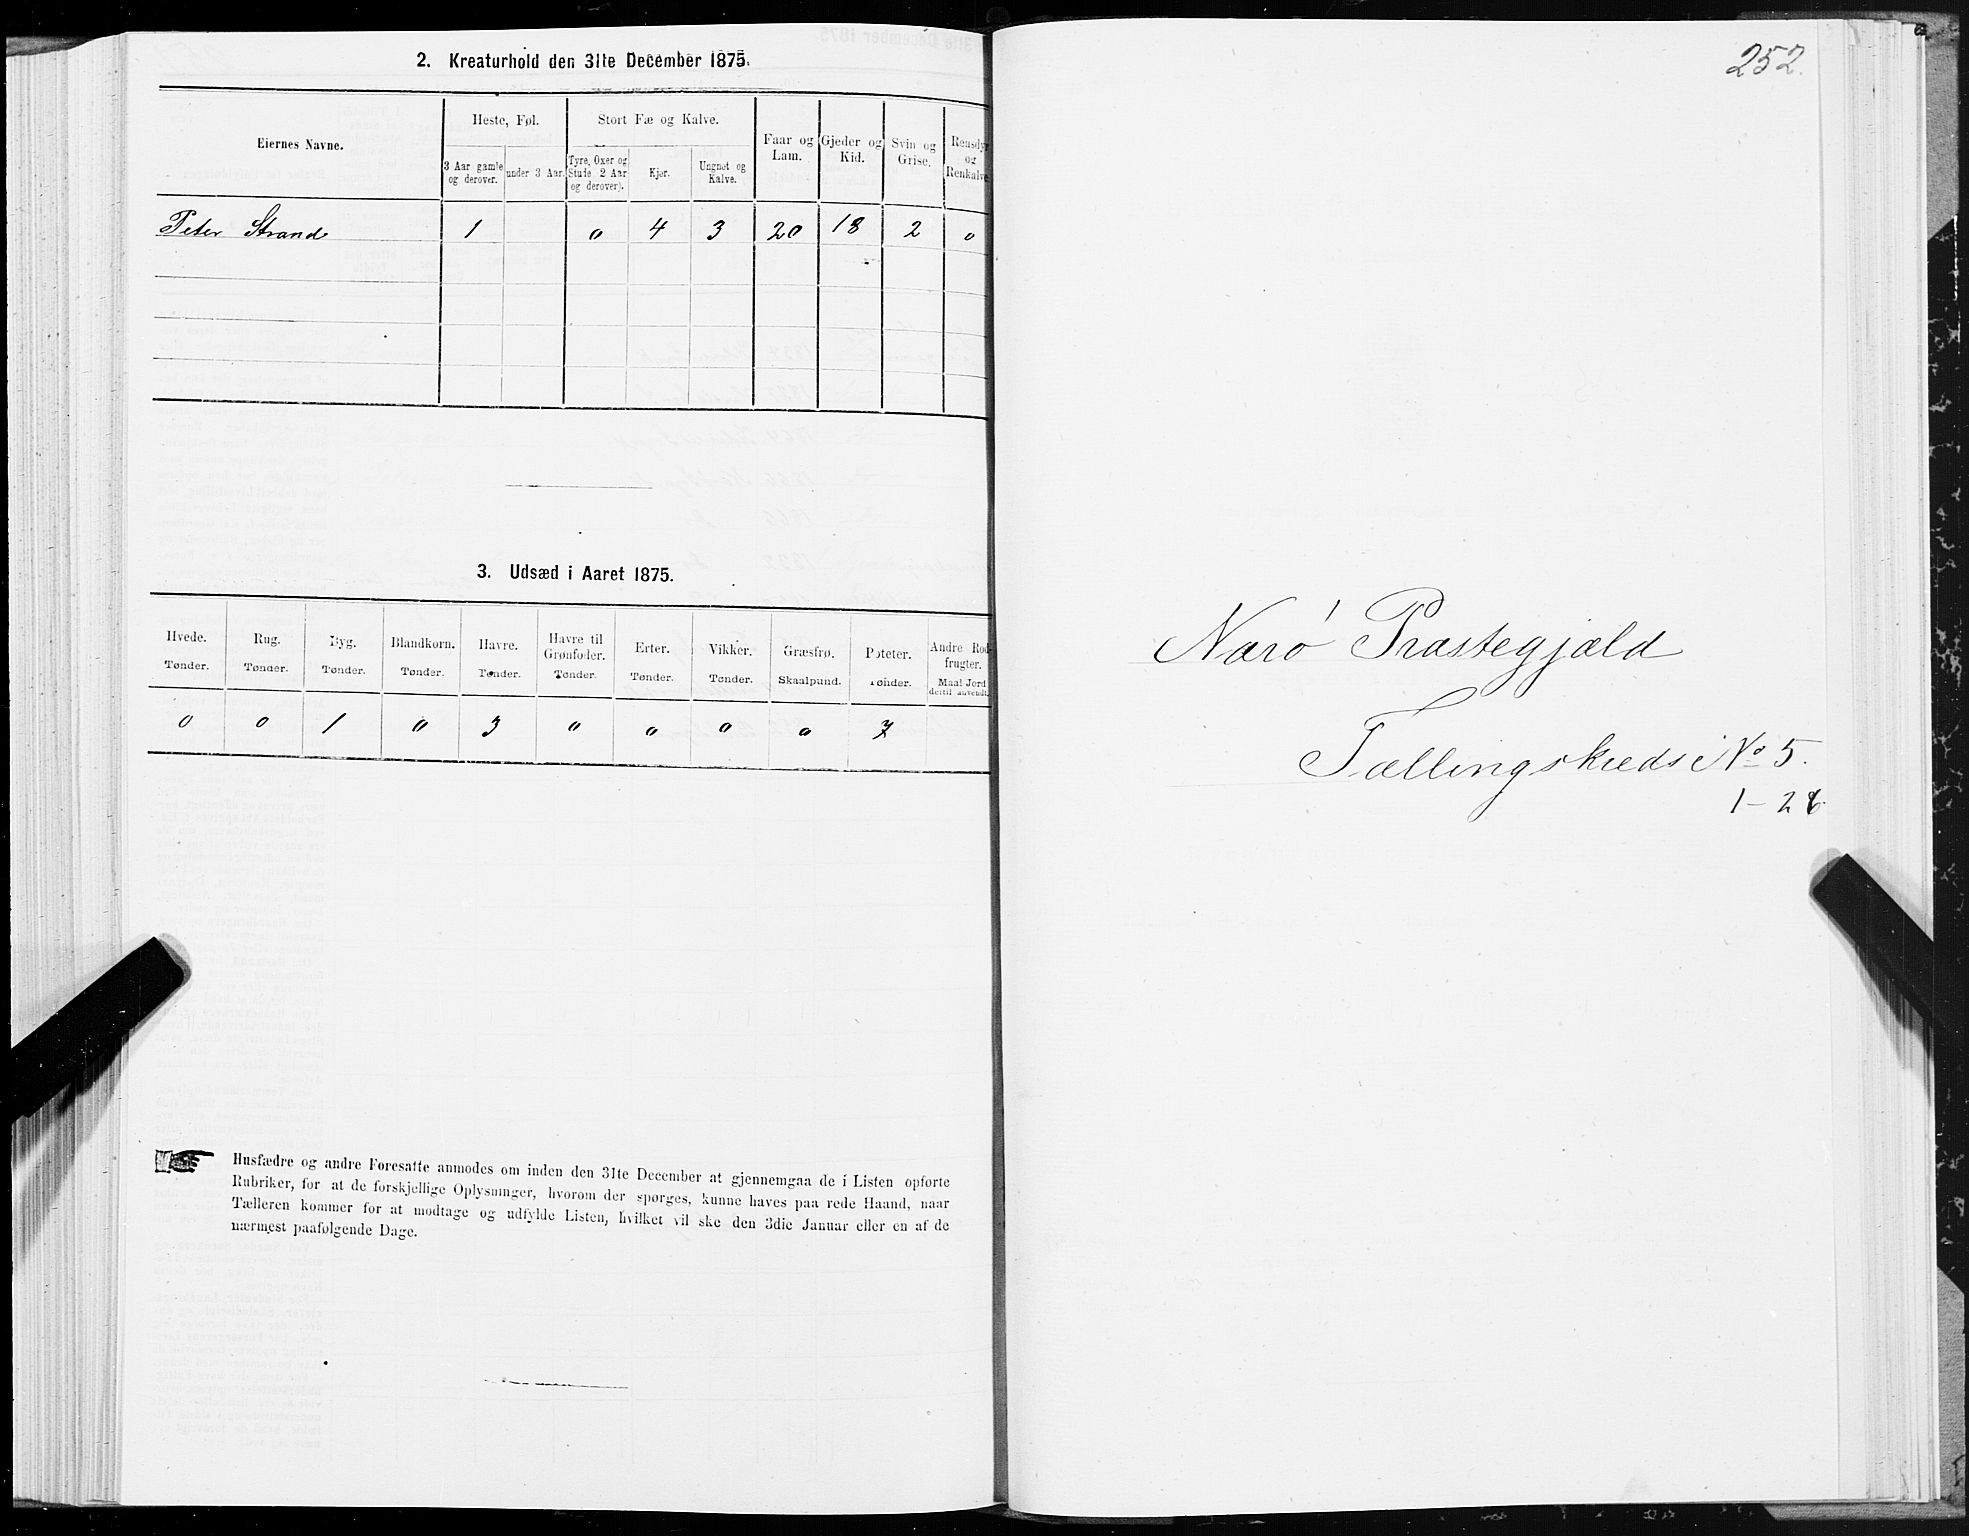 2. Kreaturhold den 31te December 1875.
Eiernes Navne.
Heste, Føl.
Stort Fæ og Kalve.
Faar og Lam.
Gjeder og Kid.
Svin og Grise.
Rensdyr og Renkalve
3 Aar gamle og derover.
under 3 Aar.
Tyre, Oxer og Stude 2 Aar og derover).
Kjør.
Ungnøt og Kalve.
Peter Strand 1 0 4 3 20 18 2 0
3. Udsæd i Aaret 1875.
Hvede. Rug. Byg. Blandkorn. Havre. Havre til Grønfoder. Erter. Vikker. Græsfrø. Poteter. Andre Rodfrugter.
Tønder. Tønder. Tønder. Tønder. Tønder. Tønder. Tønder. Tønder. Skaalpund. Tønder. Maal Jord dertil anvendt.
0 0 1 0 3 0 0 0 0 7
Husfædre og andre Foresatte anmodes om inden den 31te December at gjennemgaa de i Listen opførte
Rubriker, for at de forskjellige Oplysninger, hvorom der spørges, kunne haves paa rede Haand, naar
Tælleren kommer for at modtage og udfylde Listen, hvilket vil ske den 3die Januar eller en af de
nærmest paafølgende Dage.
252.
Nærø Præstegjæld
Tællingskreds No 5.
1-26